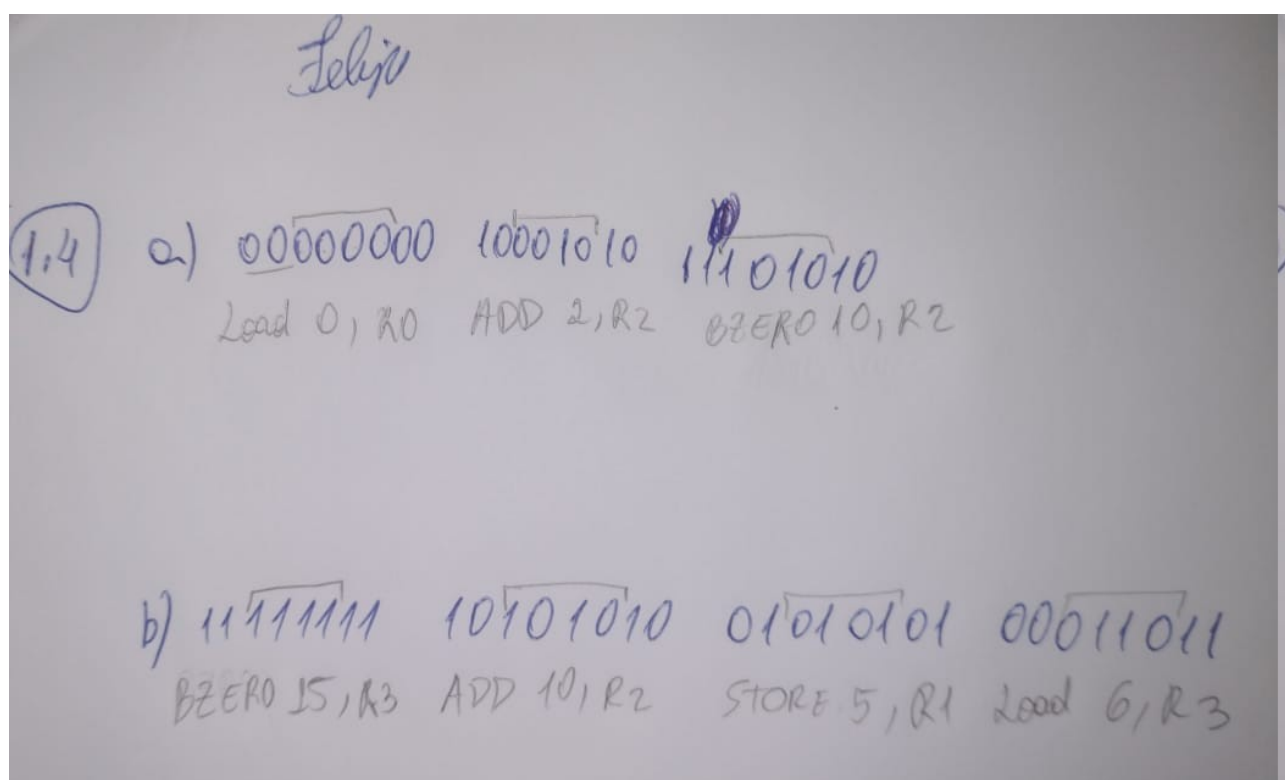 Felipe
1.4 a) 00000000 10001010 11101010
Load 0, R0 ADD 2, R2 BZERO 10, R2
b) 11111111 10101010 01010101 00011011
BZERO 15, R3 ADD 10, R2 STORE 5, R1 Load 6, R3